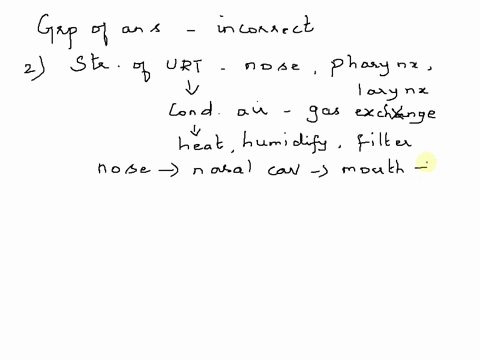 Grp of ans - incorrect
2) Str. of URT - nose, pharynx,
larynx
↓
Cond. air - gas exchange
↓
heat, humidify, filter
nose → nasal cav → mouth -